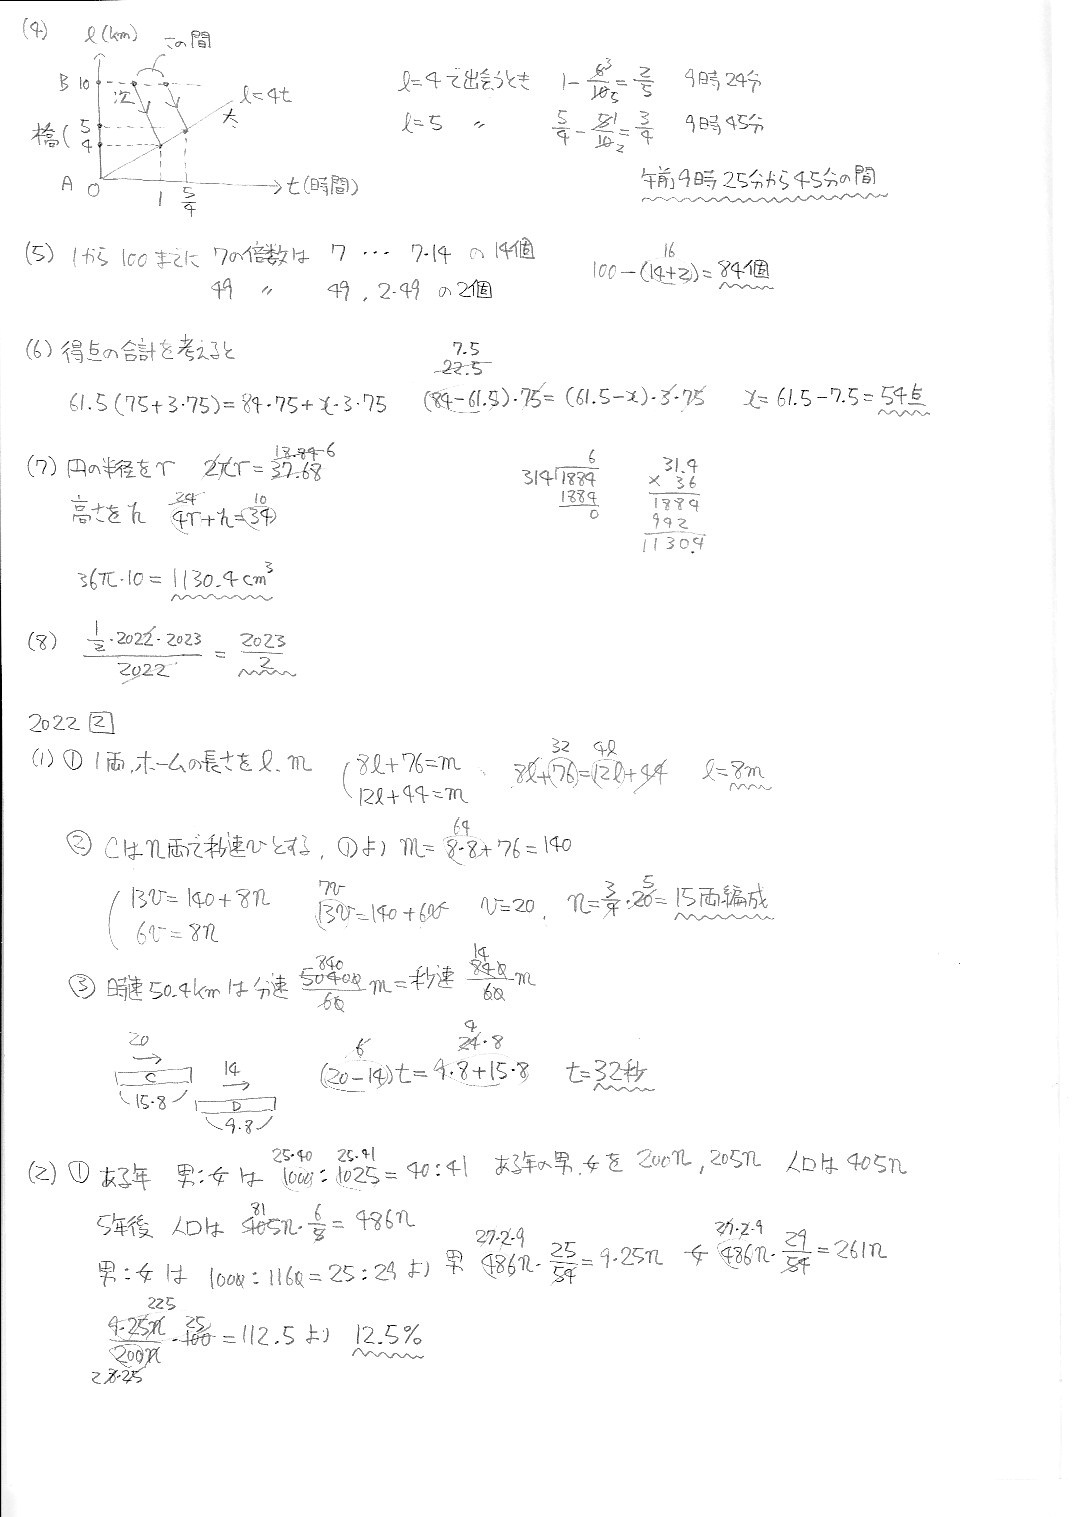 (4) l(km) この間
B 10 次 l=4t 太
橋( 5 4
A O 1 5/4 t(時間)
l=4で出会うとき 1-6/10=2/5 9時24分
l=5 〃 5/4-5/10=3/4 9時45分
午前9時25分から45分の間
(5) 1から100までに 7の倍数は 7 … 7・14 の14個
49 〃 49, 2・49 の2個
100-(14+2)=84個 16
(6) 得点の合計を考えると
61.5(75+3・75)=84・75+x・3・75 (84-61.5)・75=(61.5-x)・3・75 x=61.5-7.5=54点
7.5 22.5
(7) 円の半径をr 2πr=37.68 18.84 6
高さをh 4r+h=34 24 10
314 1884 6 1884 0
31.4 × 36 1884 942 1130.4
36π・10=1130.4cm³
(8) 1/2・2022・2023/2022 = 2023/2
2022 2
(1) ① 1両,ホームの長さをl, m 8l+76=m 8l+76=12l+44 32 4l l=8m
12l+44=m
② Cはn両で秒速vとする, ①より m=8・8+76=140 64
13v=140+8n 13v=140+6v 7v v=20, n=3/4・20=15両編成 5
6v=8n
③ 時速50.4kmは分速 50400/60 m=秒速 840/60 m 840 14
20 C 15・8 14 D 4・8
(20-14)t=4・8+15・8 6 24・8 4 t=32秒
(2) ① ある年 男:女は 1000:1025=40:41 25・40 25・41 ある年の男,女を 200n, 205n 人口は405n
5年後 人口は 405n・6/5=486n 81
男:女は 1000:1160=25:29より 男 486n・25/54=9・25n 27・2・9 女 486n・29/54=261n 27・2・9
9・25n/200n・100=112.5より 12.5% 225 25 2 8・25